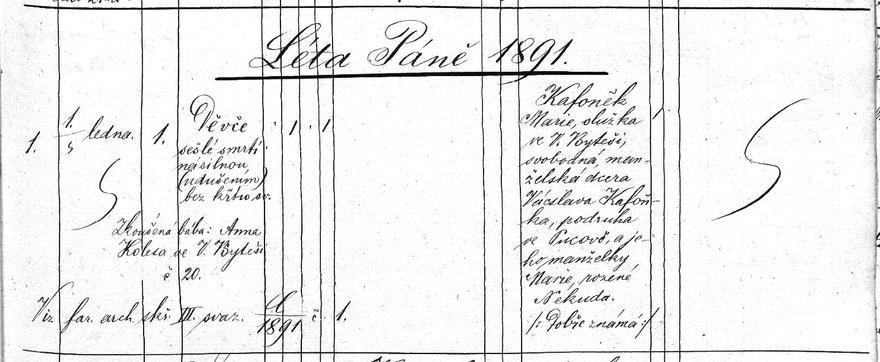 Léta Páně 1891.
1. 1./5 ledna. 1. Děvče
sešlé smrtí
násilnou
(udušením)
bez křtu sv.
Zkoušená bába: Anna
Kolesa ve V. Byteši
č 20.
Viz far. arch. skř. III. svaz. 1891 č. 1.
1 1
Kafoněk
Marie, služka
ve V. Byteši,
svobodná, man-
želská dcera
Václava Kafoň-
ka, podruha
ve Pucově, a je-
ho manželky
Marie, rozené
Nekuda.
/: Dobře známá :/
1